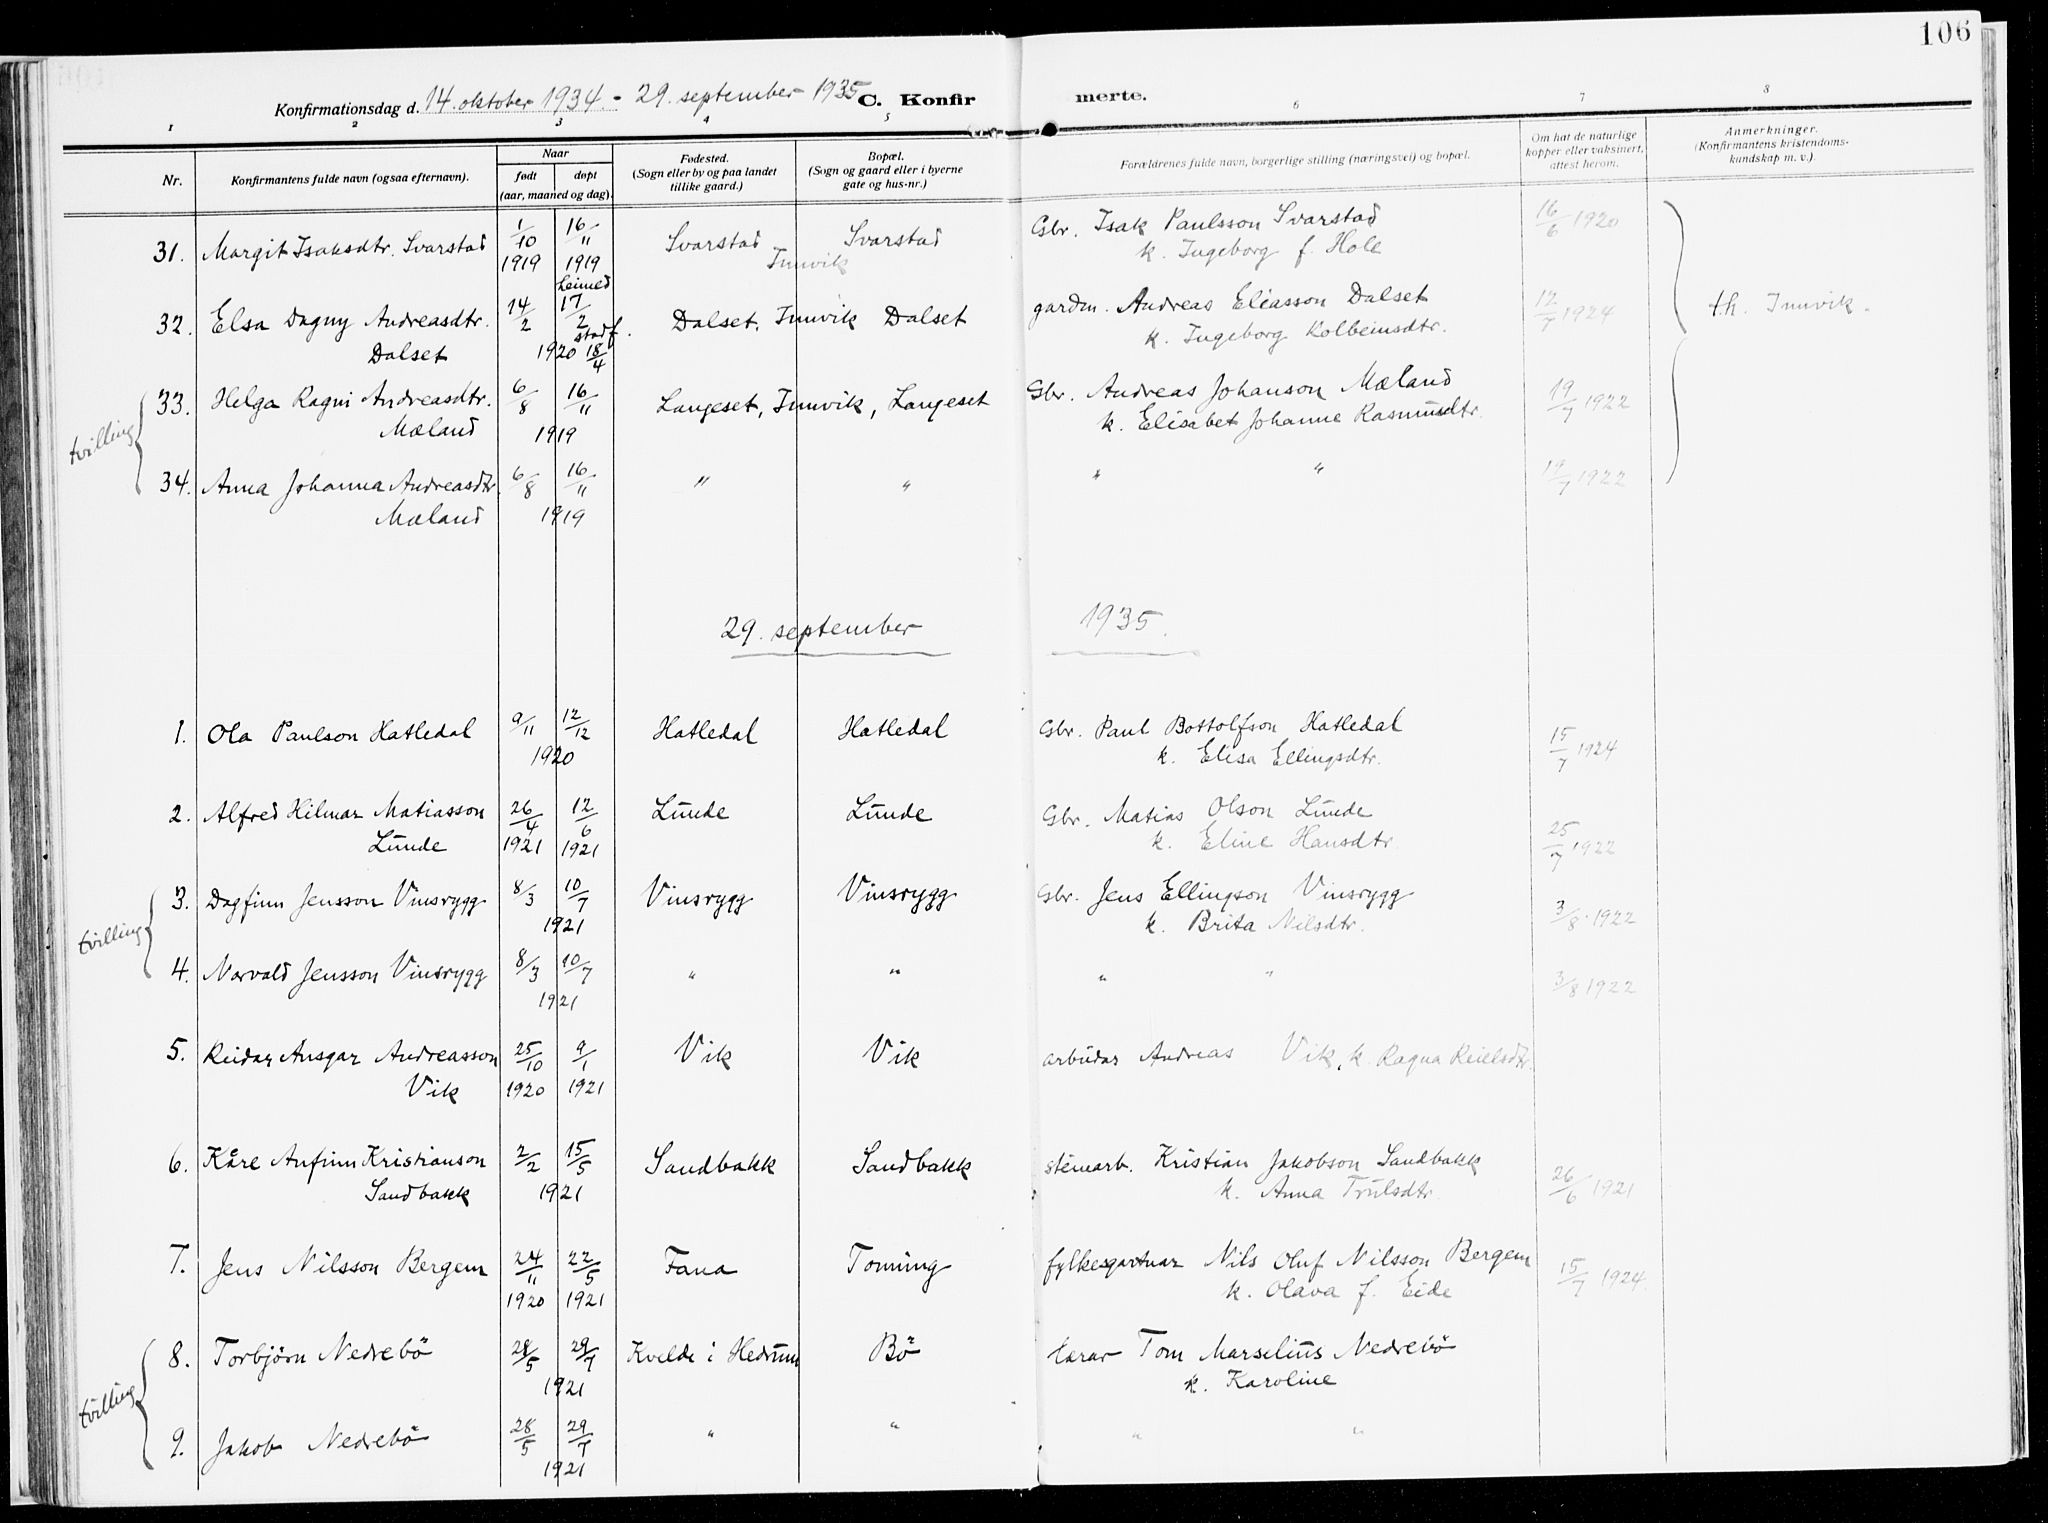 106
Konfirmationsdag d. 14. oktober 1934. - 29. september 1935 C. Konfirmerte.
1 2 3 4 5 6 7 8
Nr. Konfirmantens fulde navn (ogsaa efternavn). Naar født døpt (aar, maaned og dag). Fødested. (Sogn eller by og paa landet tillike gaard.) Bopæl. (Sogn og gaard eller i byerne gate og hus-nr.) Forældrenes fulde navn, borgerlige stilling (næringsvei) og bopæl. Om hat de naturlige kopper eller vaksinert, attest herom. Anmerkninger. (Konfirmantens kristendoms-kundskap m. v.).
31. Margit Isaksdtr. Svarstad 1/10 1919 16/11 1919 Svarstad Innvik Svarstad Gbr. Isak Paulsson Svarstad 16/6 1920
k. Ingeborg f. Hole
32. Elsa Dagny Andreasdtr. 14/2 heimed 17/2 Dalset, Innvik Dalset gardm. Andreas Eliasson Dalset 12/7 1924 th. Innvik.
Dalset 1920 stadf. 18/4 k. Ingeborg Kolbeinsdtr.
tvilling
33. Helga Ragni Andreasdtr. 6/8 16/11 Langeset, Innvik, Langeset Gbr. Andreas Johanson Mæland 19/7 1922
Mæland 1919 k. Elisabet Johanne Rasmusdtr.
34. Anna Johanna Andreasdtr. 6/8 16/11 " " " " 19/7 1922
Mæland 1919
29. september 1935.
1. Ola Paulson Hatledal 9/11 12/12 Hatledal Hatledal Gbr. Paul Bottolfson Hatledal 15/7 1924
1920 k. Elisa Ellingsdtr.
2. Alfred Hilmar Matiasson 26/4 12/6 Lunde Lunde Gbr. Matias Olson Lunde 25/7 1922
Lunde 1921 1921 k. Eline Hansdtr.
tvilling
3. Dagfinn Jensson Vinsrygg 8/3 10/7 Vinsrygg Vinsrygg Gbr. Jens Ellingson Vinsrygg 3/8 1922
1921 k. Brita Nilsdtr.
4. Norvald Jensson Vinsrygg 8/3 10/7 " " " " 3/8 1922
1921
5. Reidar Ansgar Andreasson 25/10 9/1 Vik Vik arbeidar Andreas Vik, k. Ragna Reielsdtr.
Vik 1920 1921
6. Kåre Anfinn Kristianson 2/2 15/5 Sandbakk Sandbakk steinarb. Kristian Jakobson Sandbakk 26/6 1921
Sandbakk 1921 k. Anna Trulsdtr.
7. Jens Nilsson Bergem 24/11 22/5 Fana Tonning fylkesgartnar Nils Oluf Nilsson Bergem 15/7 1924.
1920 1921 k. Olava f. Eide
tvilling
8. Torbjörn Nedrebö 28/5 29/7 Kvelde i Hedrum Bö lærar Tom Marselius Nedrebö
1921 k. Karoline
9. Jakob Nedrebö 28/5 29/7 " " " "
1921